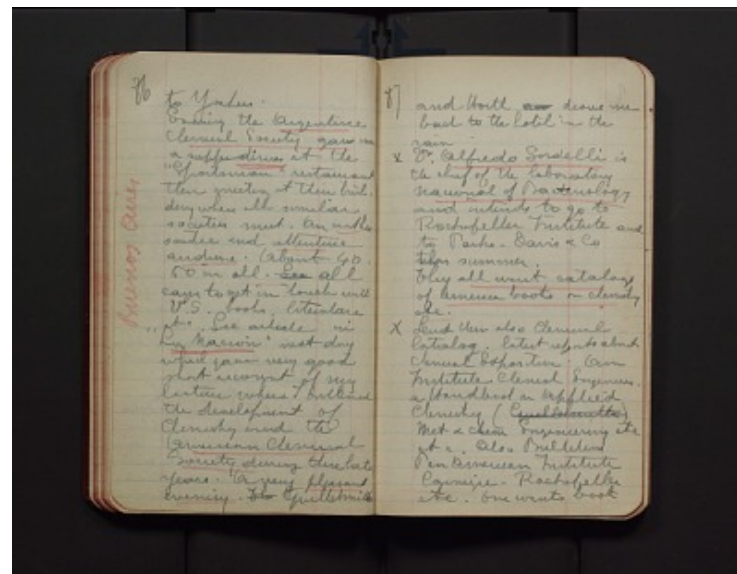 86
to Yonkers.
Evening the Argentine
Chemical Society gave me
a supper dinner at the
"Sportsman" restaurant
then meeting at their buil-
ding where all similar
societies meet. An
and attentive
audience. (about 40.
50 in all. See all
to get in touch with
U.S. books, literature
etc. See article in
"La Nacion" next day
which gave very good
short account of my
lecture where I outlined
the development of
Chemistry and the
American Chemical
Society during these last
years. A very pleasant
evening.
Buenos Aires
87
and North drove me
back to the hotel in the
rain
x Dr. Alfredo Sordelli is
the chief of the laboratory
nacional of Bacteriology
and intends to go to
Rockefeller Institute and
to Parke-Davis & Co
this summer.
They all want catalogs
of american books on chemistry
etc.
X Send them also Chemical
Catalog. latest reports about
Chemical Exposition (Am
Institute Chemical Engineers.
a Handbook on applied
Chemistry (
Met & Chem Engineering etc
etc. Also Bulletins
Pan American Institute
Carnegie - Rockefeller
etc. One wants book